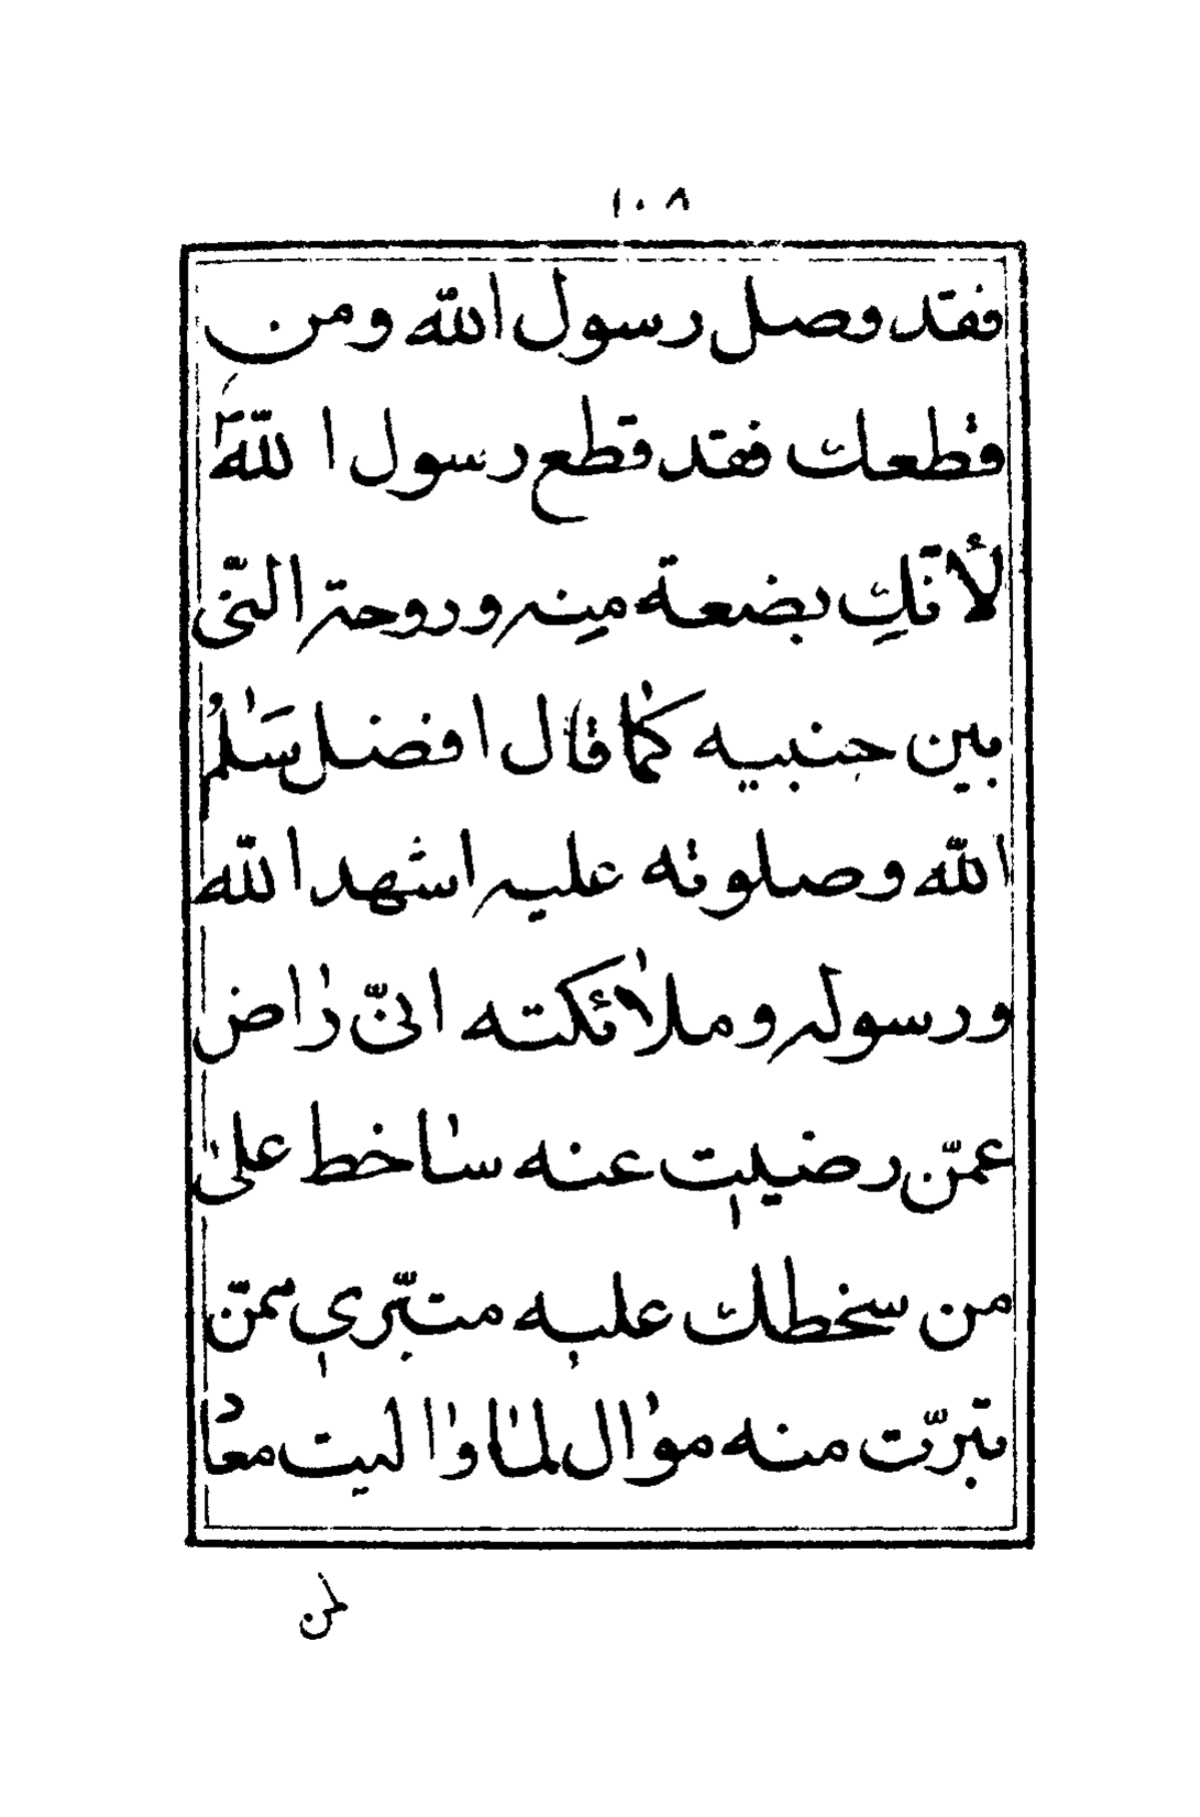 ١٠٨
فقد وصل رسول الله ومن
قطعك فقد قطع رسول الله
لأنّكِ بضعة مِنه وروحه التّى
بين جنبيه كما قال افضل سَلام
الله وصلوته عليه اشهد الله
ورسوله وملائكته انّى راض
عمّن رضيت عنه ساخط على
من سخطك عليه متبّرى ممّن
تبرّت منه موال لما واليت معاد
لمن